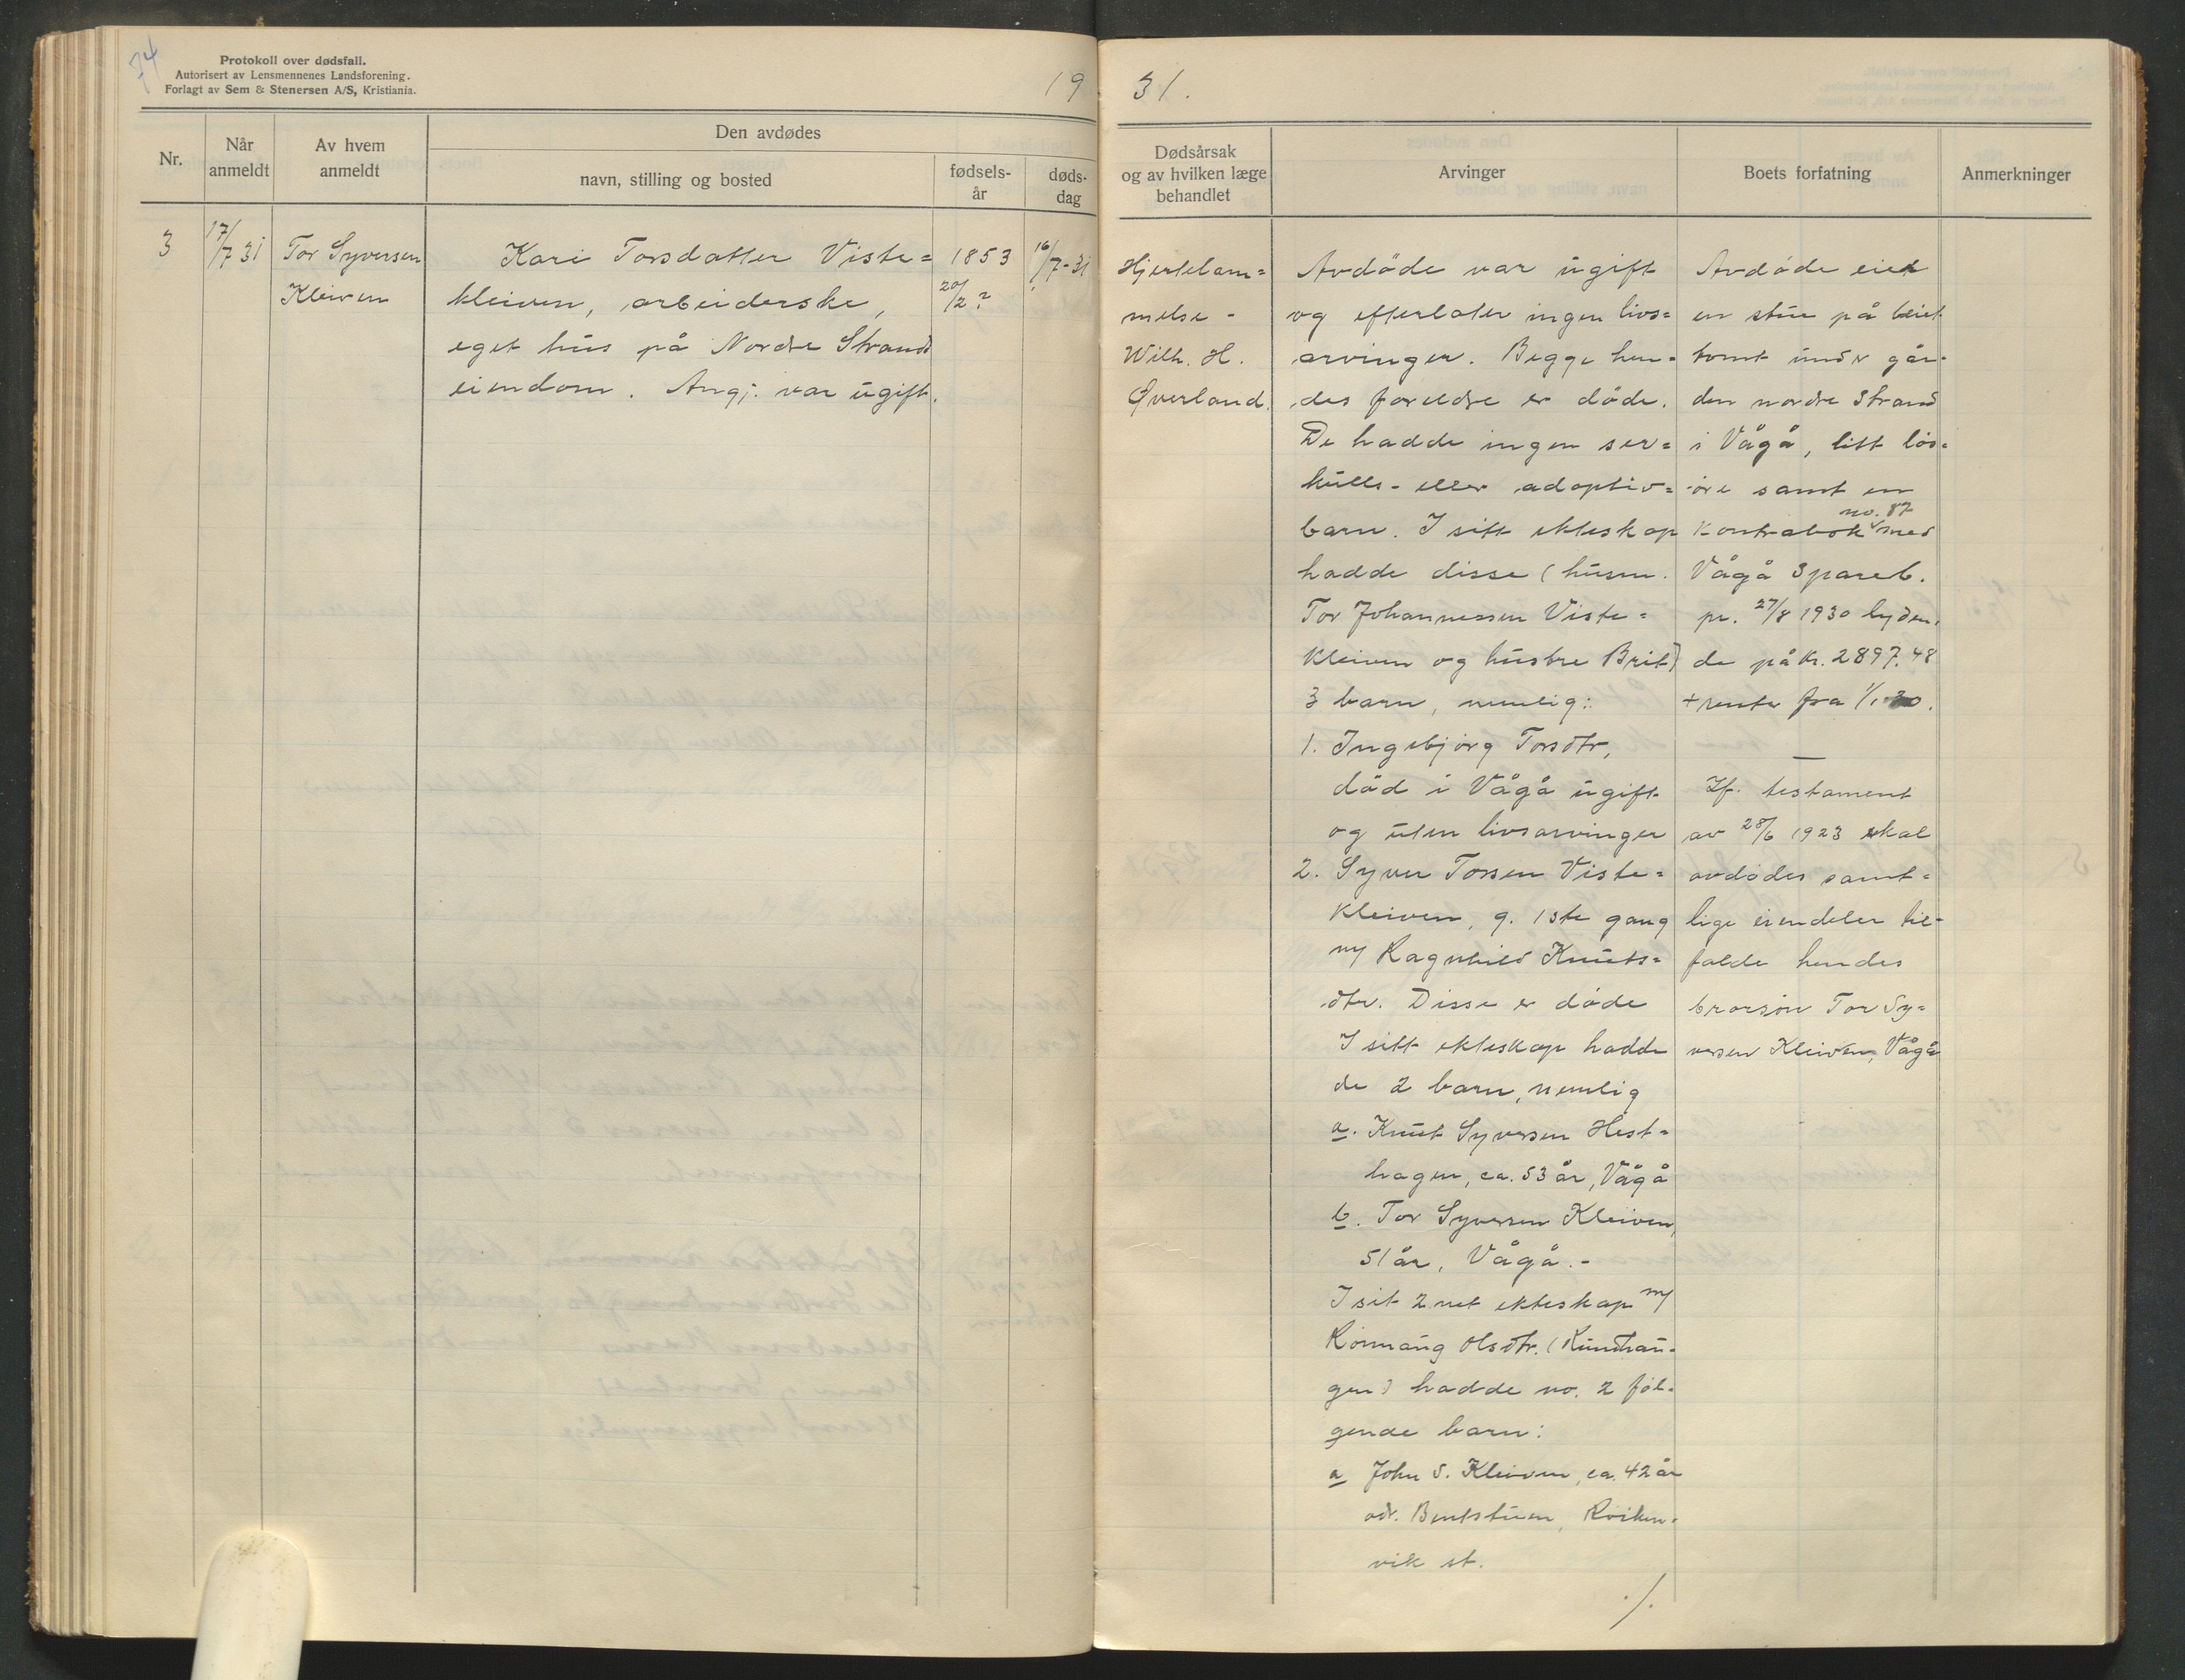 74
Protokoll over dødsfall.
Autorisert av Lensmennenes Landsforening.
Forlagt av Sem & Stenersen A/S, Kristiania.
19
31.
Nr.
Når
anmeldt
Av hvem
anmeldt
Den avdødes
navn, stilling og bosted
fødsels-
år
døds-
dag
Dødsårsak
og av hvilken læge
behandlet
Arvinger
Boets forfatning
Anmerkninger
3
17/7 31
Tor Syversen
Kleiven
Kari Torsdatter Viste=
kleiven, arbeiderske,
eget hus på Nordre Strands
eiendom. Angj. var ugift.
1853
20/2?
16/7-31
Hjertelam=
melse -
Wilh. H.
Øverland.
Avdöde var ugift
og efterlater ingen livs=
arvinger. Begge hen=
des foreldre er döde.
De hadde ingen sær=
kulls- eller adoptiv=
barn. I sitt ekteskap
hadde disse (husm.
Tor Johannessen Viste=
kleiven og hustru Brit)
3 barn, nemlig:
1. Ingebjörg Torsdtr,
död i Vågå ugift
og uten livsarvinger
2. Syver Torsen Viste=
kleiven, g. 1ste gang
m/ Ragnhild Knuts=
dtr. Disse er döde
I sitt ekteskap hadde
de 2 barn, nemlig
a. Knut Syversen Hest=
hagen, ca. 53 år, Vågå
b. Tor Syversen Kleiven,
51 år, Vågå.-
I sit 2net ekteskap m/
Rönnaug Olsdtr.
hadde no. 2 föl=
gende barn:
a John S. Kleiven, ca. 42 år
adr. Bentstuen, Röiken=
vik st.
./.
Avdöde eiet
en stue på leiet
tomt under går-
den nordre Strand
i Vågå, litt lös=
öre samt en
kontrabok no. 87 med
Vågå Spareb.
pr. 27/8 1930 lyden-
de på kr. 2897.48
+ renter fra 1/1 30.
—
If. testament
av 28/6 1923 skal
avdödes samt=
lige eiendeler til-
falde hendes
brorsön Tor Sy=
versen Kleiven, Vågå